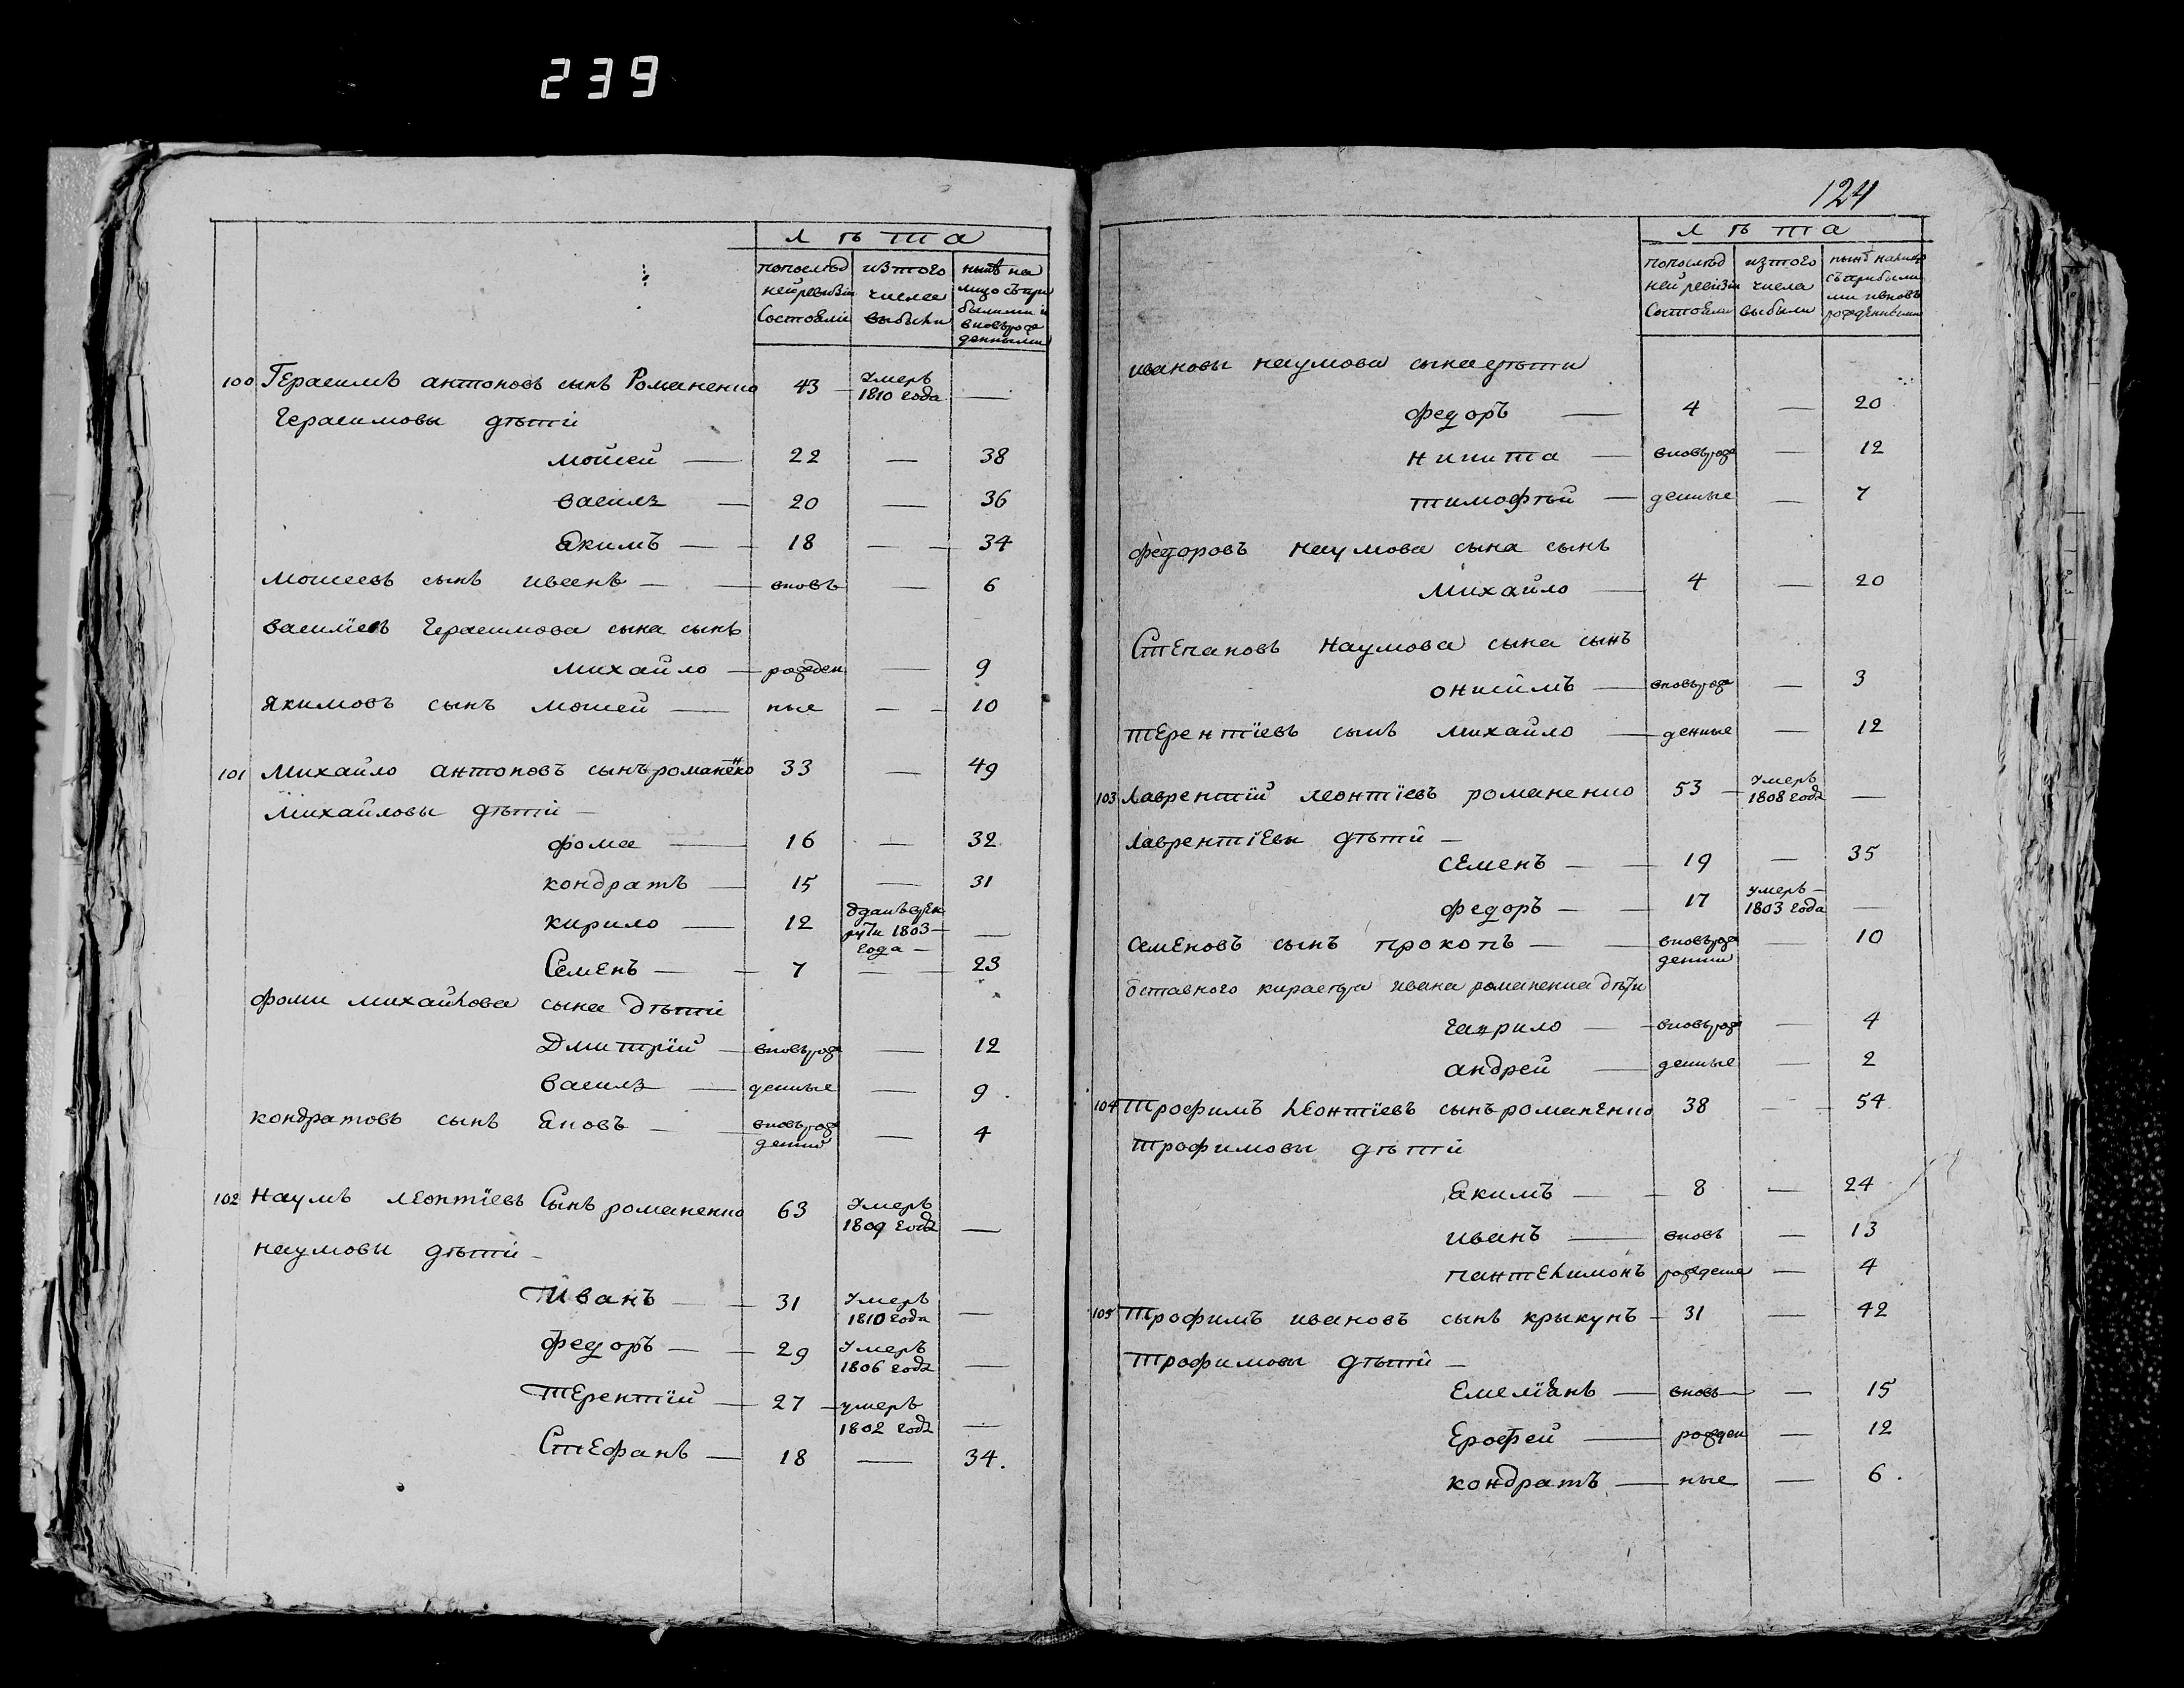 239
лѣта
попослѣд изтого нынѣ на
ней ревизіи числа лицо съ при
состояли выбыли былыми и
вновь рож
денными
100 Герасимъ антоновъ сынъ Романенко 43 Умеръ 1810 года —
Герасимовы дѣти
мойсей — 22 — 38
василь — 20 — 36
Екимъ — 18 — 34
мойсеевъ сынъ иванъ — вновь — 6
василіевъ герасимова сына сынъ
михайло — рожден — 9
якимовъ сынъ мойсей — ные — 10
101 Михайло антоновъ сынъ романенко 33 — 49
михайловы дѣти —
фома — 16 — 32
кондратъ — 15 — 31
кирило — 12 отданъ врек рути 1803 года —
Семенъ — 7 — 23
фоми михайлова сына дѣти
Дмитрій — вновь рож — 12
василь — денные — 9
кондратовъ сынъ Яковъ — вновь рож денный — 4
102 Наумъ леонтіевъ Сынъ романенко 63 Умеръ 1809 года —
наумовы дѣти —
Иванъ — 31 Умеръ 1810 года —
федоръ — 29 Умеръ 1806 года —
Терентій — 27 умеръ 1802 года —
Стефанъ — 18 — 34.
124
лѣта
попослѣд изтого нынѣ налицо
ней ревизіи числа съ прибылы
состояли выбыли ми и вновь
рожденными
ивановы наумова сына дѣти
федоръ — 4 — 20
никита — вновь рож — 12
тимофѣй — денные — 7
федоровъ наумова сына сынъ
михайло — 4 — 20
Степановъ наумова сына сынъ
онисимъ — вновь рож — 3
терентіевъ сынъ михайло — денные — 12
103 Лаврентій леонтіевъ романенко 53 — Умеръ 1808 года —
лаврентіевы дѣти —
семенъ — 19 — 35
федоръ — 17 умеръ — 1803 года —
семеновъ сынъ прокопъ — вновь рож денный — 10
отставного кирасера ивана романенка дѣти
гаврило — вновь рож — 4
андрей — денные — 2
104 трофимъ леонтіевъ сынъ романенко 38 — 54
трофимовы дѣти
Екимъ — 8 — 24
иванъ — вновь — 13
пантелимонъ рожденые — 4
105 трофимъ ивановъ сынъ крыкунъ — 31 — 42
трофимовы дѣти —
емеліянъ — вновь — 15
Ерофей — рожден — 12
кондратъ — ные — 6.